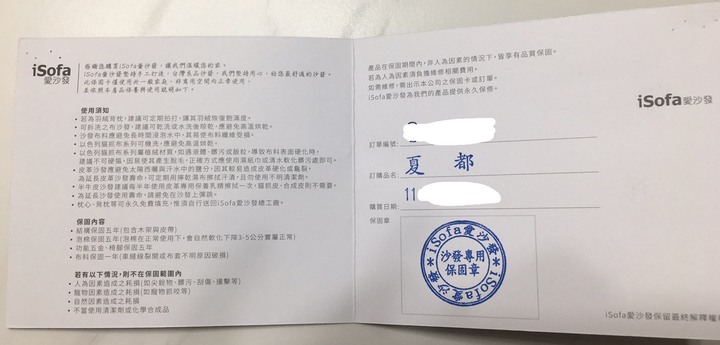 iSofa
愛沙發
感謝您購買iSofa愛沙發,讓我們溫暖您的家。
iSofa愛沙發堅持手工打造,台灣良品沙發,我們堅持用心,給您最舒適的沙發。
此保固卡僅使用於一般家庭、非商用空間內正常使用,
並依照本產品保養與使用說明如下。
使用須知
• 若為羽絨背枕,建議可定期拍打,讓其羽絨恢復飽滿度。
• 可拆洗之布沙發,建議可乾洗或水洗後晾乾,應避免高溫烘乾。
• 沙發布料應避免長時間浸泡水中,其易使布料纖維受損。
• 以色列貓抓布系列可機洗,應避免高溫烘乾。
• 以色列貓抓布系列屬植絨材質,如遇液體、髒污或飯粒,導致布料表面硬化時,
建議不可硬摳,因易使其產生脫毛,正確方式應使用濕紙巾或清水軟化髒污處即可。
• 皮革沙發應避免太陽西曬與汗水中的鹽分,因其較易造成皮革硬化或龜裂。
為延長皮革沙發壽命,可定期用擰乾濕布擦拭汗漬,且勿使用不明清潔劑。
• 半牛皮沙發建議每半年使用皮革專用保養乳精擦拭一次,貓抓皮、合成皮則不需要。
• 為延長沙發使用壽命,請避免在沙發上彈跳。
• 枕心、背枕等可永久免費填充,惟須自行送回iSofa愛沙發總工廠。
保固內容
• 結構保固五年(包含木架與皮帶)
• 泡棉保固五年(泡棉在正常使用下,會自然軟化下降3-5公分實屬正常)
• 功能五金、椅腳保固五年
• 布料保固一年(車縫線裂開或布套不明原因破損)
若有以下情況,則不在保固範圍內
• 人為因素造成之耗損(如尖銳物、髒污、刮傷、撞擊等)
• 寵物因素造成之耗損(如寵物抓咬等)
• 自然因素造成之耗損
• 不當使用清潔劑或化學合成品
產品在保固期間內,非人為因素的情況下,皆享有品質保固。
若為人為因素須負擔維修相關費用。
如需維修,需出示本公司之保固卡或訂單。
iSofa愛沙發為我們的產品提供永久保修。
iSofa愛沙發
訂單編號:
夏 都
訂購品名:
11
購買日期:
保固章
*iSofa愛沙發*
沙發專用
保固章
iSofa愛沙發
iSofa愛沙發保留最終解釋權利